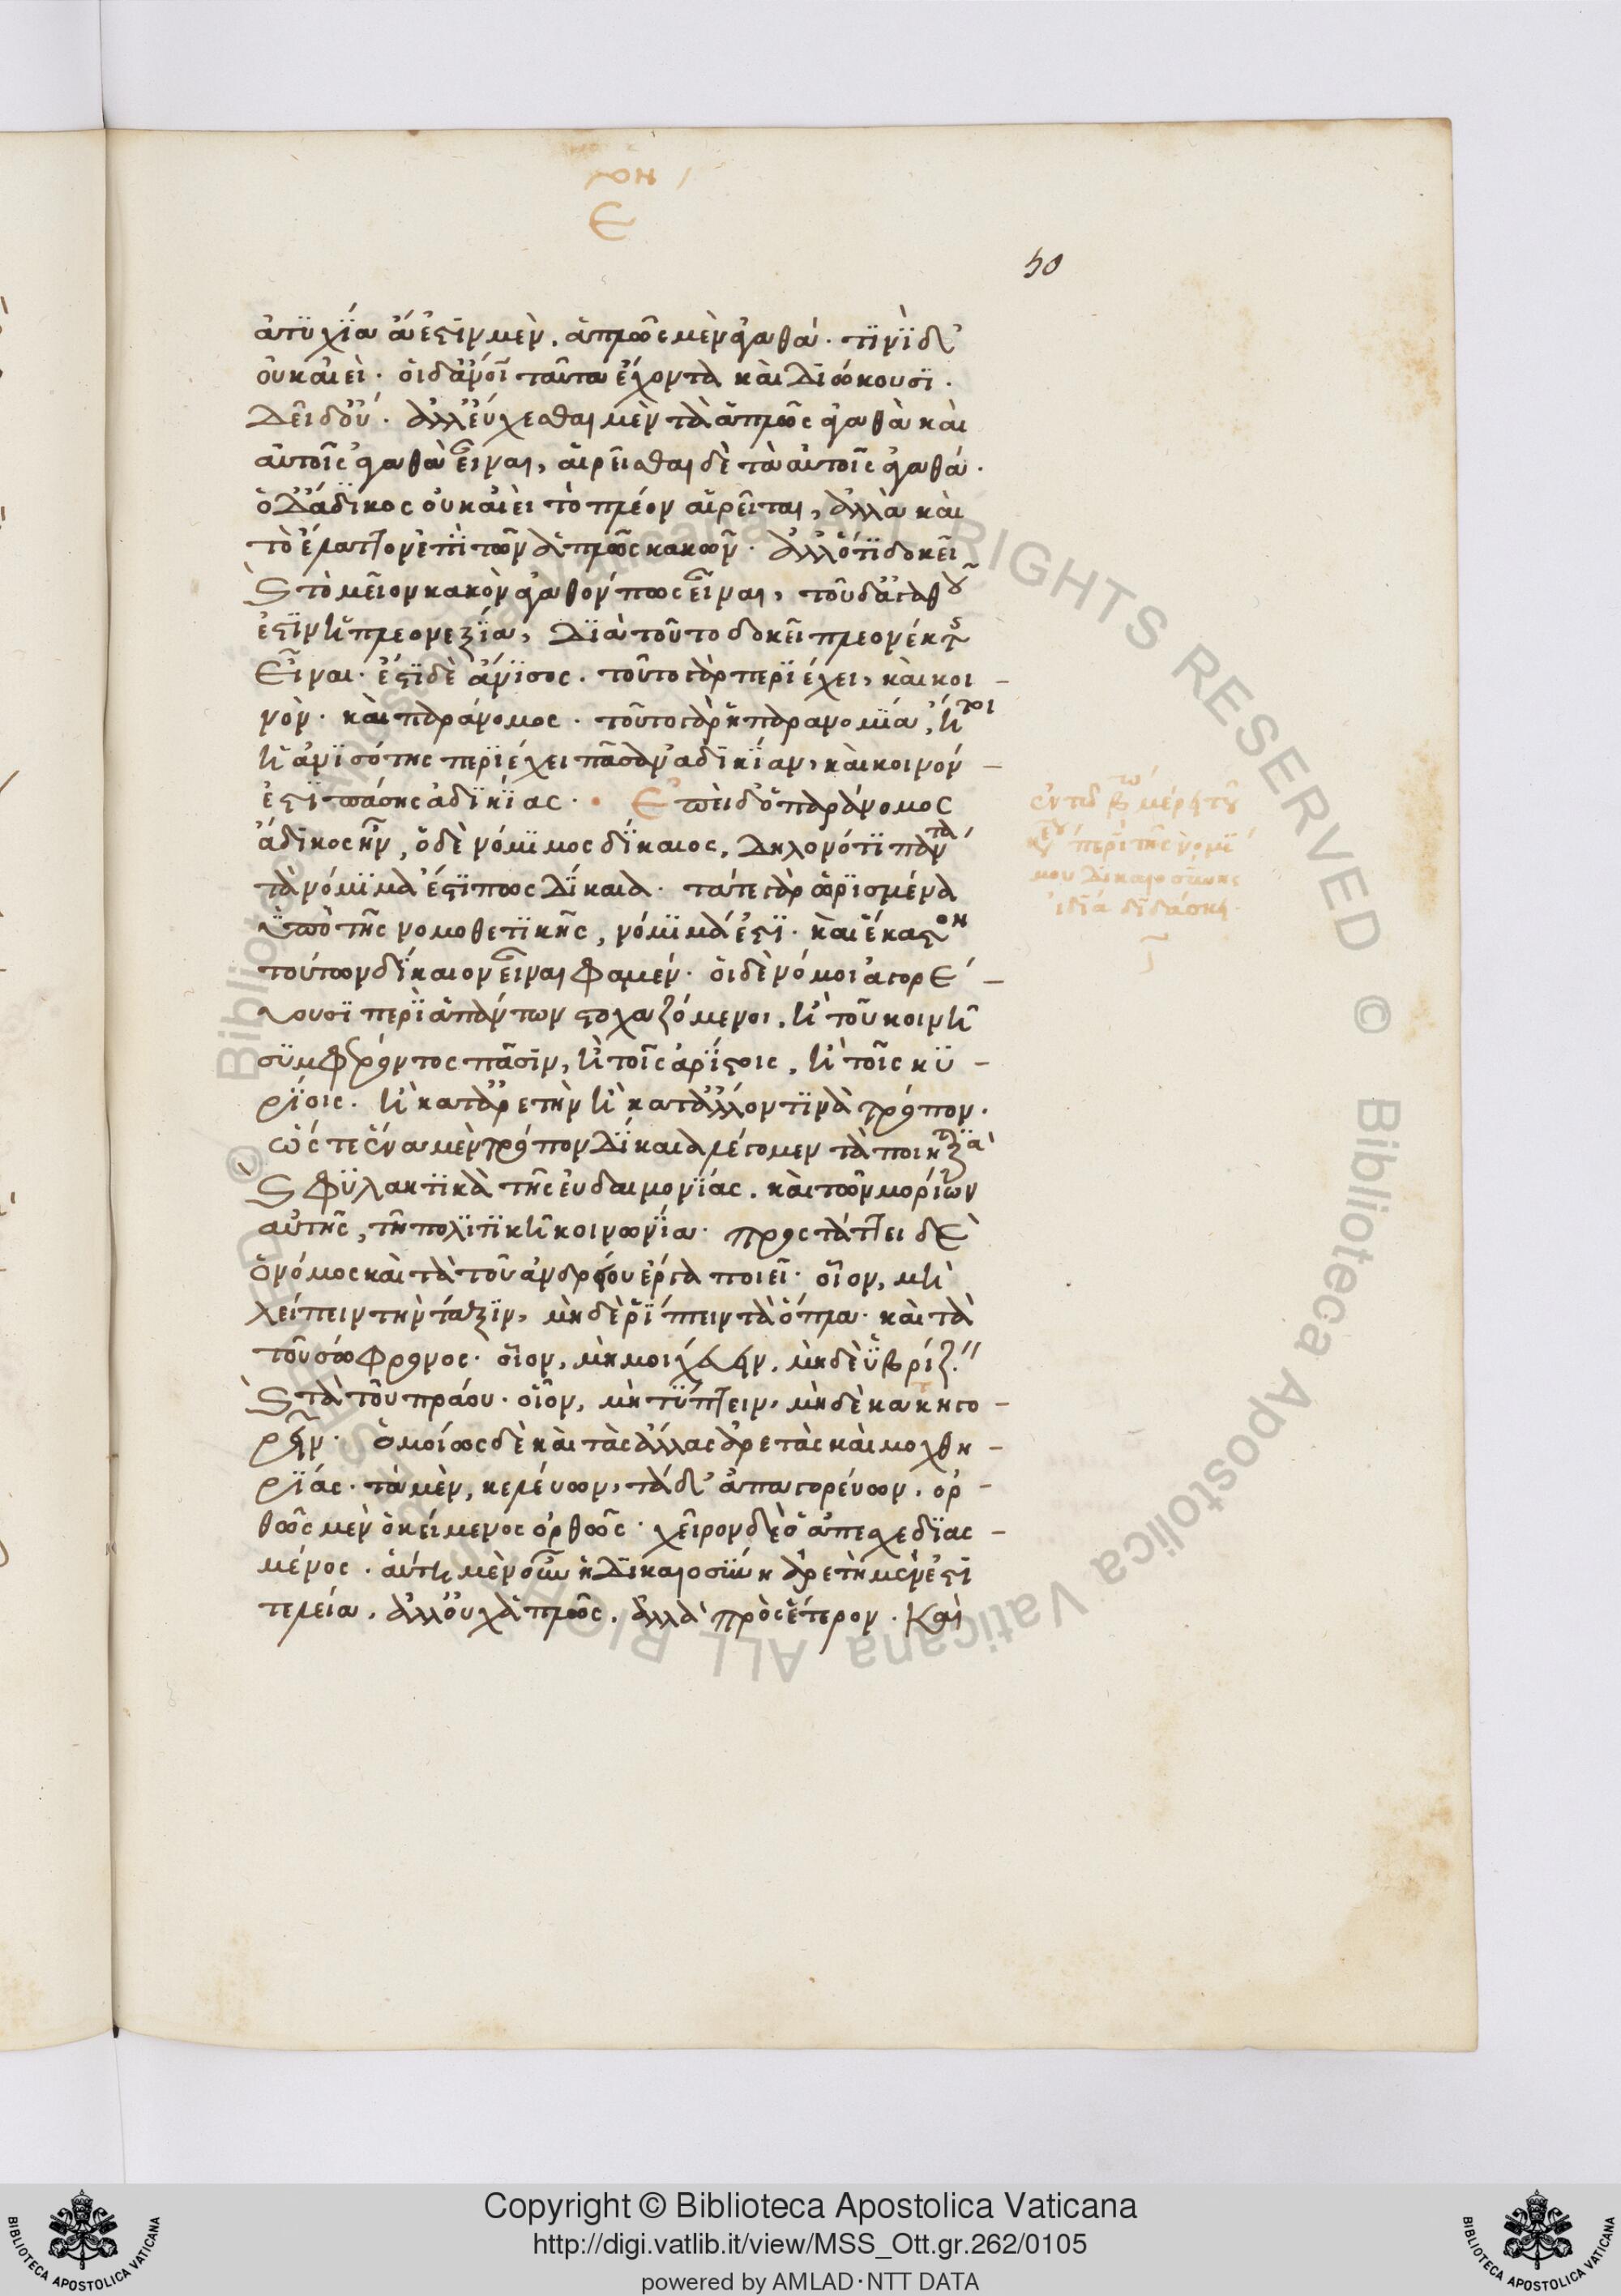 Ε
50
ἀτυχία ἅ ἐστὶν μὲν, ἁπλῶς μὲν ἀγαθά· τινὶ δ'
οὐκ ἀιεί· οἱ δ' ἄνθρωποι ταῦτα ἔχοντα καὶ διώκουσι·
Δεῖ δ' οὔ· ἀλλ' εὔχεσθαι μὲν τὰ ἁπλῶς ἀγαθὰ καὶ
αὐτοῖς ἀγαθὰ εἶναι, αἱρεῖσθαι δὲ τὰ αὐτοῖς ἀγαθά·
ὁ δ' ἄδικος οὐκ ἀιεὶ τὸ πλέον αἱρεῖται, ἀλλὰ καὶ
τὸ ἔλαττον ἐπὶ τῶν ἁπλῶς κακῶν· ἀλλ' ὅτι δοκεῖ
ϛ τὸ μεῖον κακὸν ἀγαθόν πως εἶναι, τοῦ δ' ἀγαθοῦ
ἐστὶν ἡ πλεονεξία, Διὰ τοῦτο δοκεῖ πλεονέκτης
Εἶναι· ἔστι δὲ ἄνισος· τοῦτο γὰρ περιέχει, καὶ κοι-
νόν· καὶ παράνομος· τοῦτο γὰρ ἡ παρανομία, ἤτοι
ἡ ἀνισότης περιέχει πᾶσαν ἀδικίαν, καὶ κοινόν-
ἐστὶ πάσης ἀδικίας· Ἐπεὶ δ' ὁ παράνομος
ἄδικος ἦν, ὁ δὲ νόμιμος δίκαιος, Δηλονότι πάντα
τὰ νόμιμα ἐστί πως Δίκαια· τά τε γὰρ ὡρισμένα
ὑπὸ τῆς νομοθετικῆς, νόμιμά ἐστι· καὶ ἕκαστον
τούτων δίκαιον εἶναι φαμέν· οἱ δὲ νόμοι ἀγορε-
ύουσι περὶ ἁπάντων στοχαζόμενοι, ἢ τοῦ κοινῇ
συμφέροντος πᾶσιν, ἢ τοῖς ἀρίστοις, ἢ τοῖς κυ-
ρίοις· ἢ κατ' ἀρετὴν ἢ κατ' ἄλλον τινὰ τρόπον·
ὥστε ἕνα μὲν τρόπον Δίκαια λέγομεν τὰ ποιητικὰ
ϛ φυλακτικὰ τῆς εὐδαιμονίας, καὶ τῶν μορίων
αὐτῆς, τῇ πολιτικῇ κοινωνία· προστάττει δὲ
ὁ νόμος καὶ τὰ τοῦ ἀνδρείου ἔργα ποιεῖ· οἷον, μὴ
λείπειν τὴν τάξιν, μηδὲ ῥίπτειν τὰ ὅπλα· καὶ τὰ
τοῦ σώφρονος· οἷον, μὴ μοιχεύειν, μηδὲ ὑβρίζειν
ϛ τὰ τοῦ πράου· οἷον, μὴ τύπτειν, μηδὲ κακηγο-
ρεῖν· ὁμοίως δὲ καὶ τὰς ἄλλας ἀρετὰς καὶ μοχθη-
ρίας· τὰ μὲν, κελεύων, τὰ δ' ἀπαγορεύων, ὀρ-
θῶς μὲν ὁ κείμενος ὀρθῶς· χεῖρον δ' ὁ ἀπεσχεδιας-
μένος· αὕτη μὲν οὖν ἡ Δικαιοσύνη ἀρετὴ μέν ἐστι
τελεία, ἀλλ' οὐχ ἁπλῶς, ἀλλὰ πρὸς ἕτερον· Καὶ
ἐν τῶ β μέρει τοῦ
περὶ τῆς νομί
μου δικαιοσύνης
ἰδία διδάσκει
Copyright © Biblioteca Apostolica Vaticana
http://digi.vatlib.it/view/MSS_Ott.gr.262/0105
powered by AMLAD·NTT DATA
BIBLIOTECA APOSTOLICA VATICANA
BIBLIOTECA APOSTOLICA VATICANA
© Biblioteca Apostolica Vaticana ALL RIGHTS RESERVED © Biblioteca Apostolica Vaticana ALL RIGHTS RESERVED